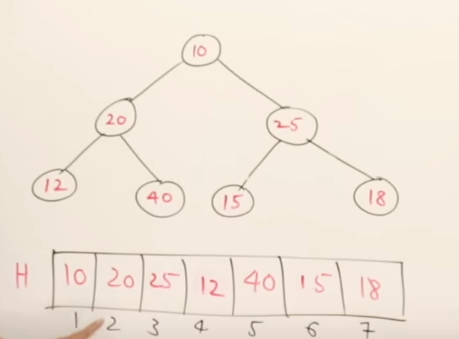 10
20 25
12 40 15 18
H 10 20 25 12 40 15 18
1 2 3 4 5 6 7